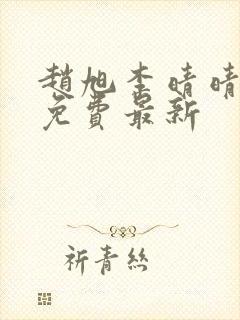 趙旭李晴晴
免費最新
祈青絲